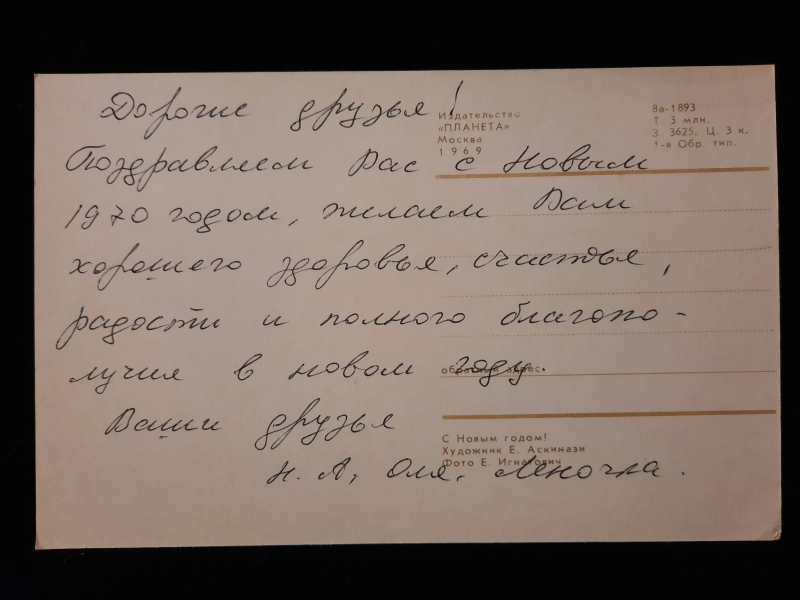 Дорогие друзья!
Издательство
«ПЛАНЕТА»
Москва
1969
8а-1893
Т. 3 млн.
З. 3625. Ц. 3 к.
1-я Обр. тип.
Поздравляем Вас с Новым
1970 годом, желаем Вам
хорошего здоровья, счастья,
радости и полного благопо-
лучия в новом году.
обратный адрес:
Ваши друзья
С Новым годом!
Художник Е. Аскинази
Фото Е. Игнатович
Н. А, Оля, Леночка.